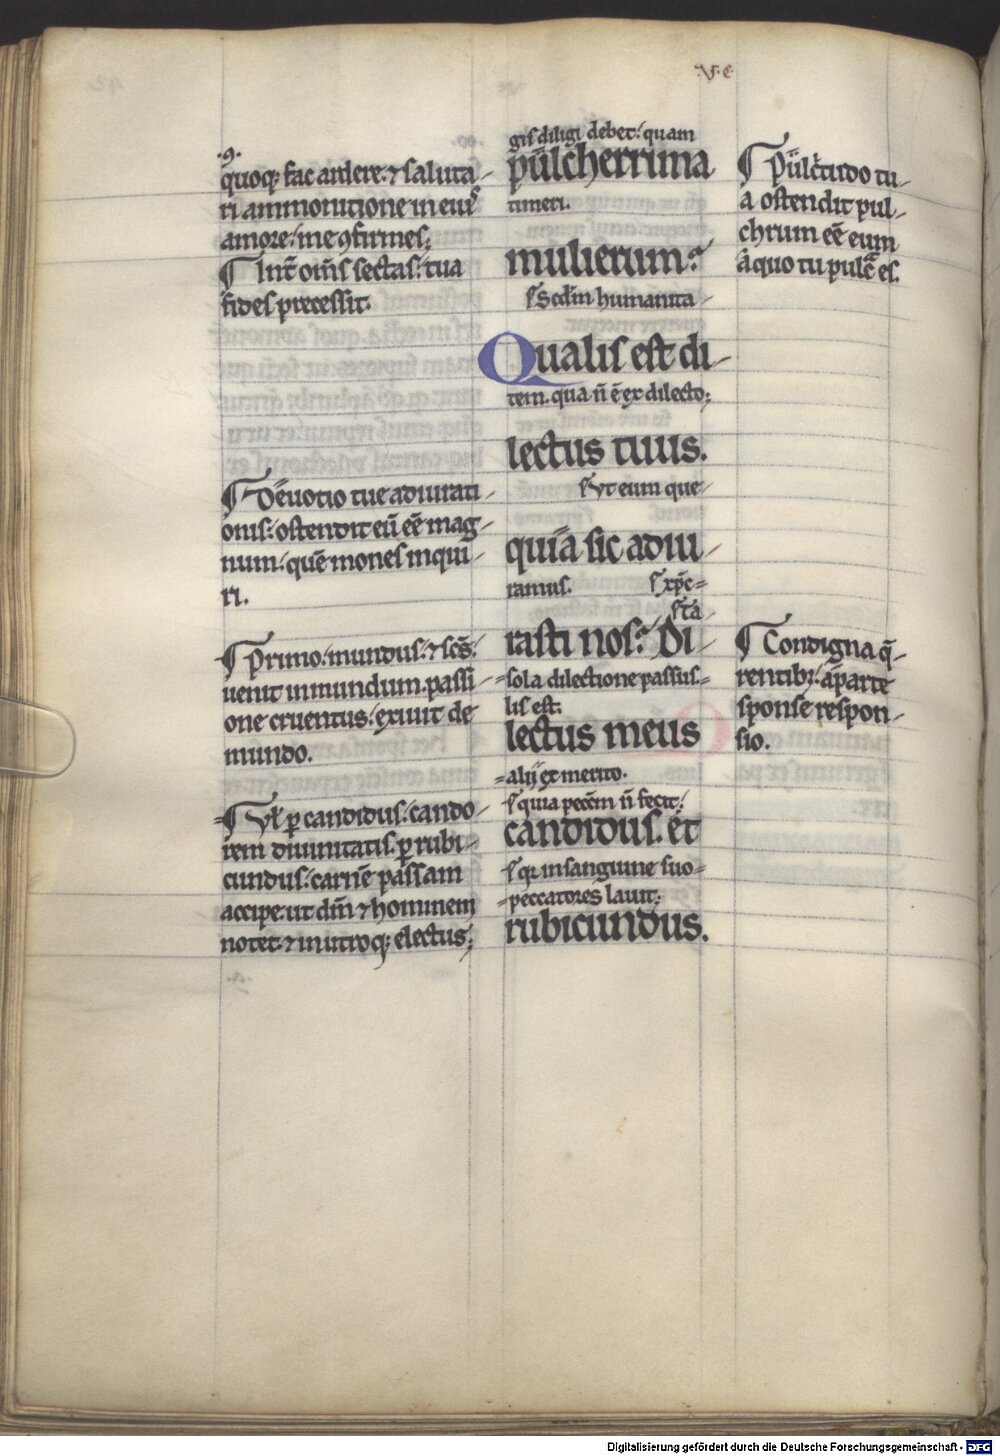 .V. C.
.9.
quoq; fac ardere. ⁊ saluta-
ri ammonitione in eius
amore: me ꝯfirmes;
¶ Int̄ om̄s sectas: tua
fides precessit.
¶ Deuotio tue adiurati-
onis: ostendit eū eē mag-
num: quē mones inqui-
ri.
¶ Primo: mundus: ⁊ sc̄s:
uenit in mundum. passi-
one cruentus: exiuit de
mundo.
¶ Vl ꝑ candidus: cando-
rem diuinitatis. ꝑ rubi-
cundus: carnē passam
accipe. ut dm̄ ⁊ hominem
notet. ⁊ in utroq; electus;
gis diligi debet: quam
pulcherrima
timeri.
mulierum?
Sed in humanita-
Qualis est di-
tem. qua n̄ ē ex dilecto;
lectus tuus.
Vt eum que-
quia sic adiu-
ramus. xp̄c=
sta-
rasti nos? Di-
=sola dilectione passus=
lis est.
lectus meus
=alij ex merito.
quia pecc̄m n̄ fecit;
candidus. et
qr in sanguine suo=
=peccatores lauit;
rubicundus.
¶ Pulc̄tudo tu-
a ostendit pul-
chrum eē eum
a quo tu pulc̄ es.
¶ Condigna q̄-
rentibꝫ: a parte
sponse respon-
sio.
Digitalisierung gefördert durch die Deutsche Forschungsgemeinschaft - DFG